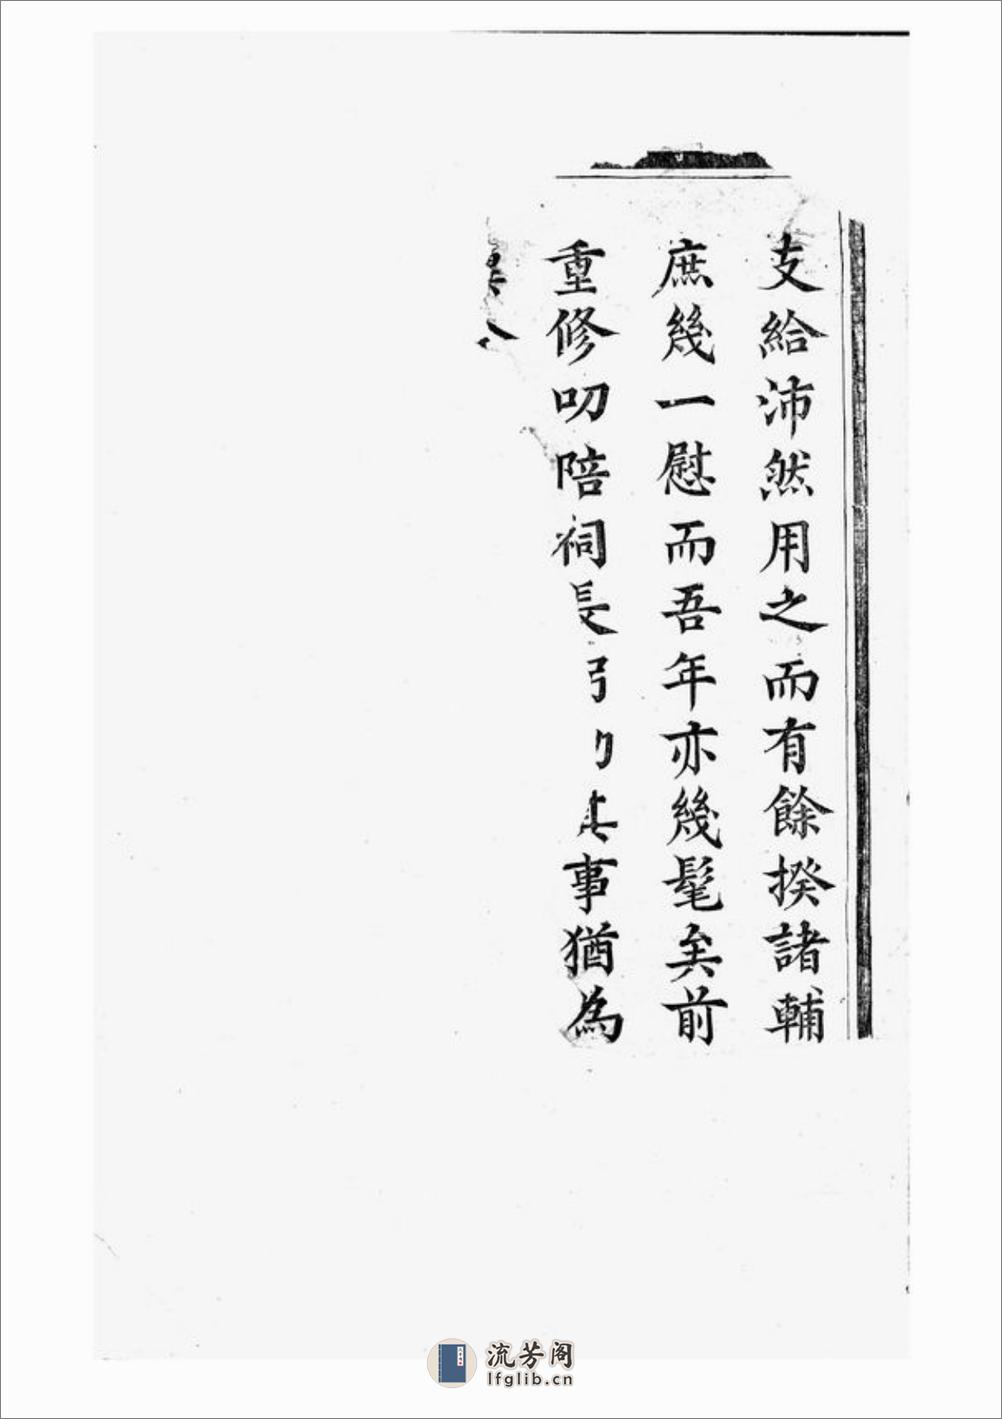 支給沛然用之而有餘揆諸輔
庶幾一慰而吾年亦幾髦矣前
重修叨陪祠長事猶為
流芳阁
lfglib.cn